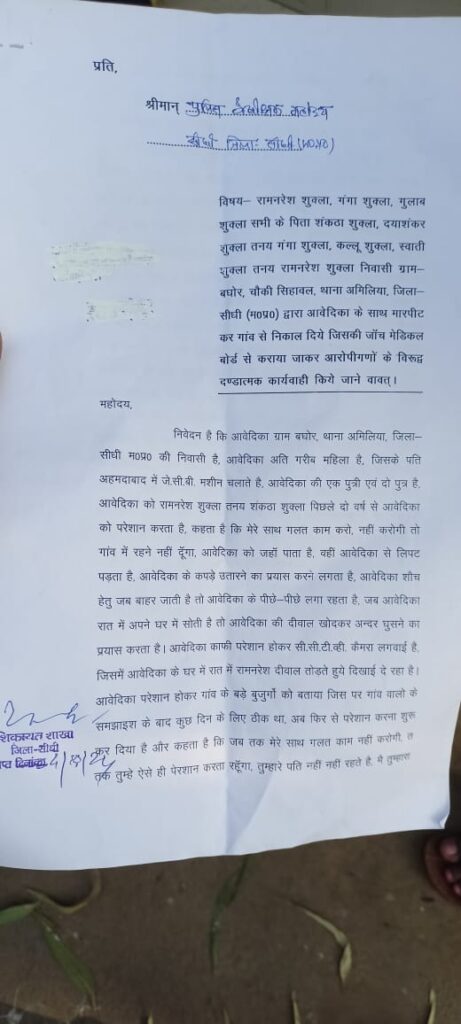 प्रति,
श्रीमान् पुलिस अधीक्षक महोदय
सीधी जिला- सीधी (म०प्र०)
विषय– रामनरेश शुक्ला, गंगा शुक्ला, गुलाब
शुक्ला सभी के पिता शंकठा शुक्ला, दयाशंकर
शुक्ला तनय गंगा शुक्ला, कल्लू शुक्ला, स्वाती
शुक्ला तनय रामनरेश शुक्ला निवासी ग्राम–
बघोर, चौकी सिहावल, थाना अमिलिया, जिला–
सीधी (म०प्र०) द्वारा आवेदिका के साथ मारपीट
कर गांव से निकाल दिये जिसकी जॉच मेडिकल
बोर्ड से कराया जाकर आरोपीगणों के विरूद्व
दण्डात्मक कार्यवाही किये जाने वावत्।
महोदय,
निवेदन है कि आवेदिका ग्राम बघोर, थाना अमिलिया, जिला–
सीधी म०प्र० की निवासी है, आवेदिका अति गरीब महिला है, जिसके पति
अहमदाबाद में जे.सी.बी. मशीन चलाते है, आवेदिका की एक पुत्री एवं दो पुत्र है,
आवेदिका को रामनरेश शुक्ला तनय शंकठा शुक्ला पिछले दो वर्ष से आवेदिका
को परेशान करता है, कहता है कि मेरे साथ गलत काम करो, नहीं करोगी तो
गांव में रहने नहीं दूँगा, आवेदिका को जहॉ पाता है, वहीं आवेदिका से लिपट
पड़ता है, आवेदिका के कपड़े उतारने का प्रयास करने लगता है, आवेदिका शौच
हेतु जब बाहर जाती है तो आवेदिका के पीछे–पीछे लगा रहता है, जब आवेदिका
रात में अपने घर में सोती है तो आवेदिका की दीवाल खोदकर अन्दर घुसने का
प्रयास करता है। आवेदिका काफी परेशान होकर सी.सी.टी.व्ही. कैमरा लगवाई है,
जिसमें आवेदिका के घर में रात में रामनरेश दीवाल तोडते हुये दिखाई दे रहा है।
आवेदिका परेशान होकर गांव के बड़े बुजुर्गो को बताया जिस पर गांव वालो के
समझाइश के बाद कुछ दिन के लिए ठीक था, अब फिर से परेशान करना शुरू
कर दिया है और कहता है कि जब तक मेरे साथ गलत काम नहीं करोगी, त
तक तुम्हे ऐसे ही पेरशान करता रहूँगा, तुम्हारे पति नहीं नहीं रहते है, मे तुम्हारा
शिकायत शाखा
जिला-सीधी
दिनांक